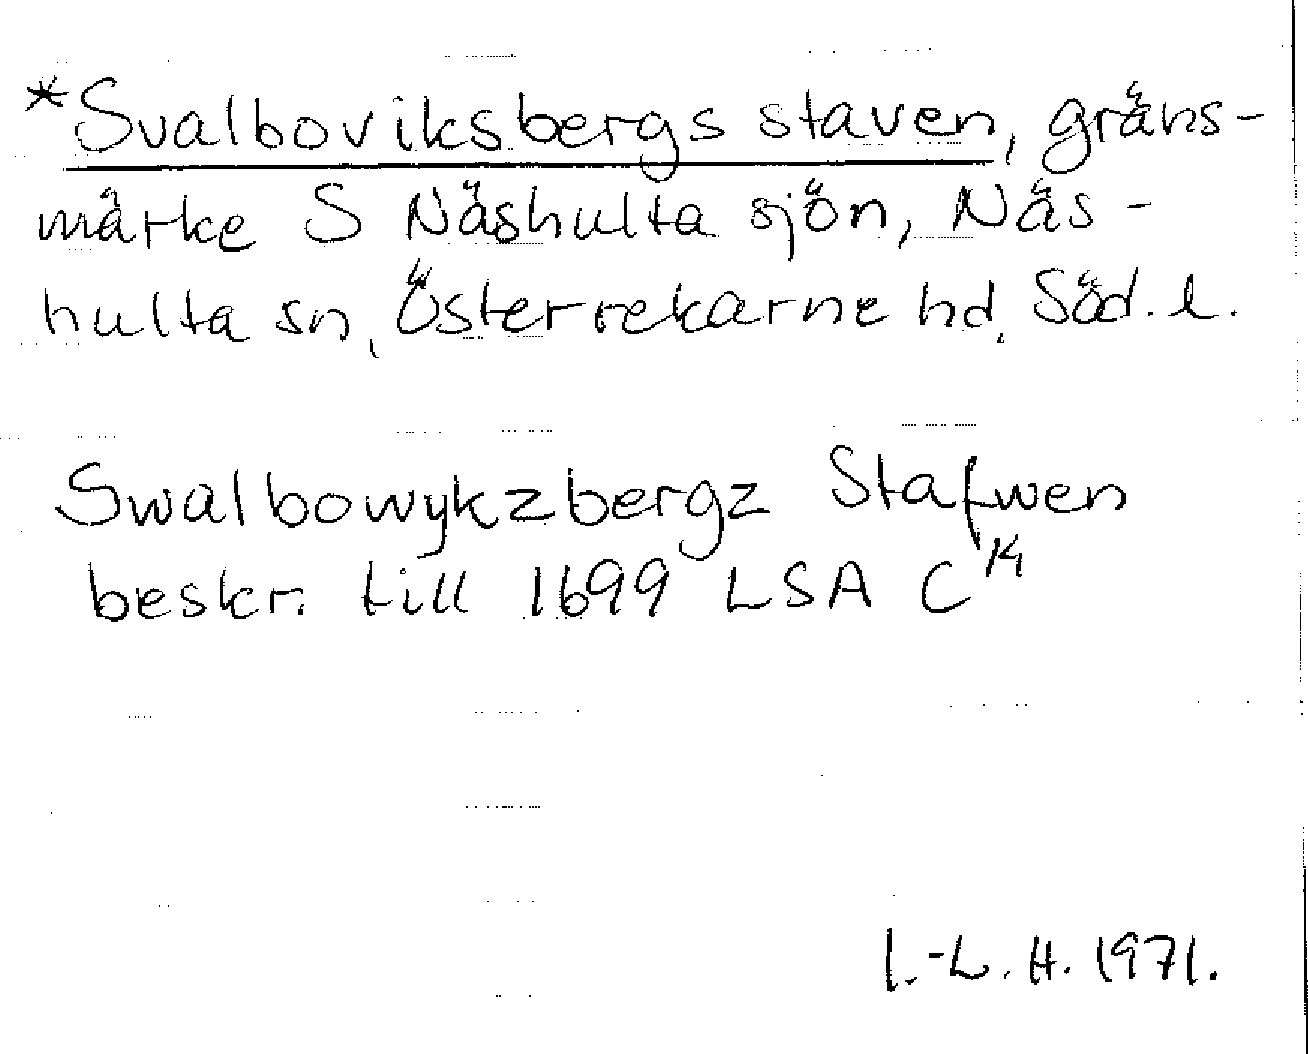 *Svalboviksbergs staven, gräns-
märke S Näshulta sjön, Näs-
hulta sn, Österrekarne hd, Söd. l.
Swalbowykzbergz Stafwen
beskr. till 1699 LSA C14
I.-L. H. 1971.